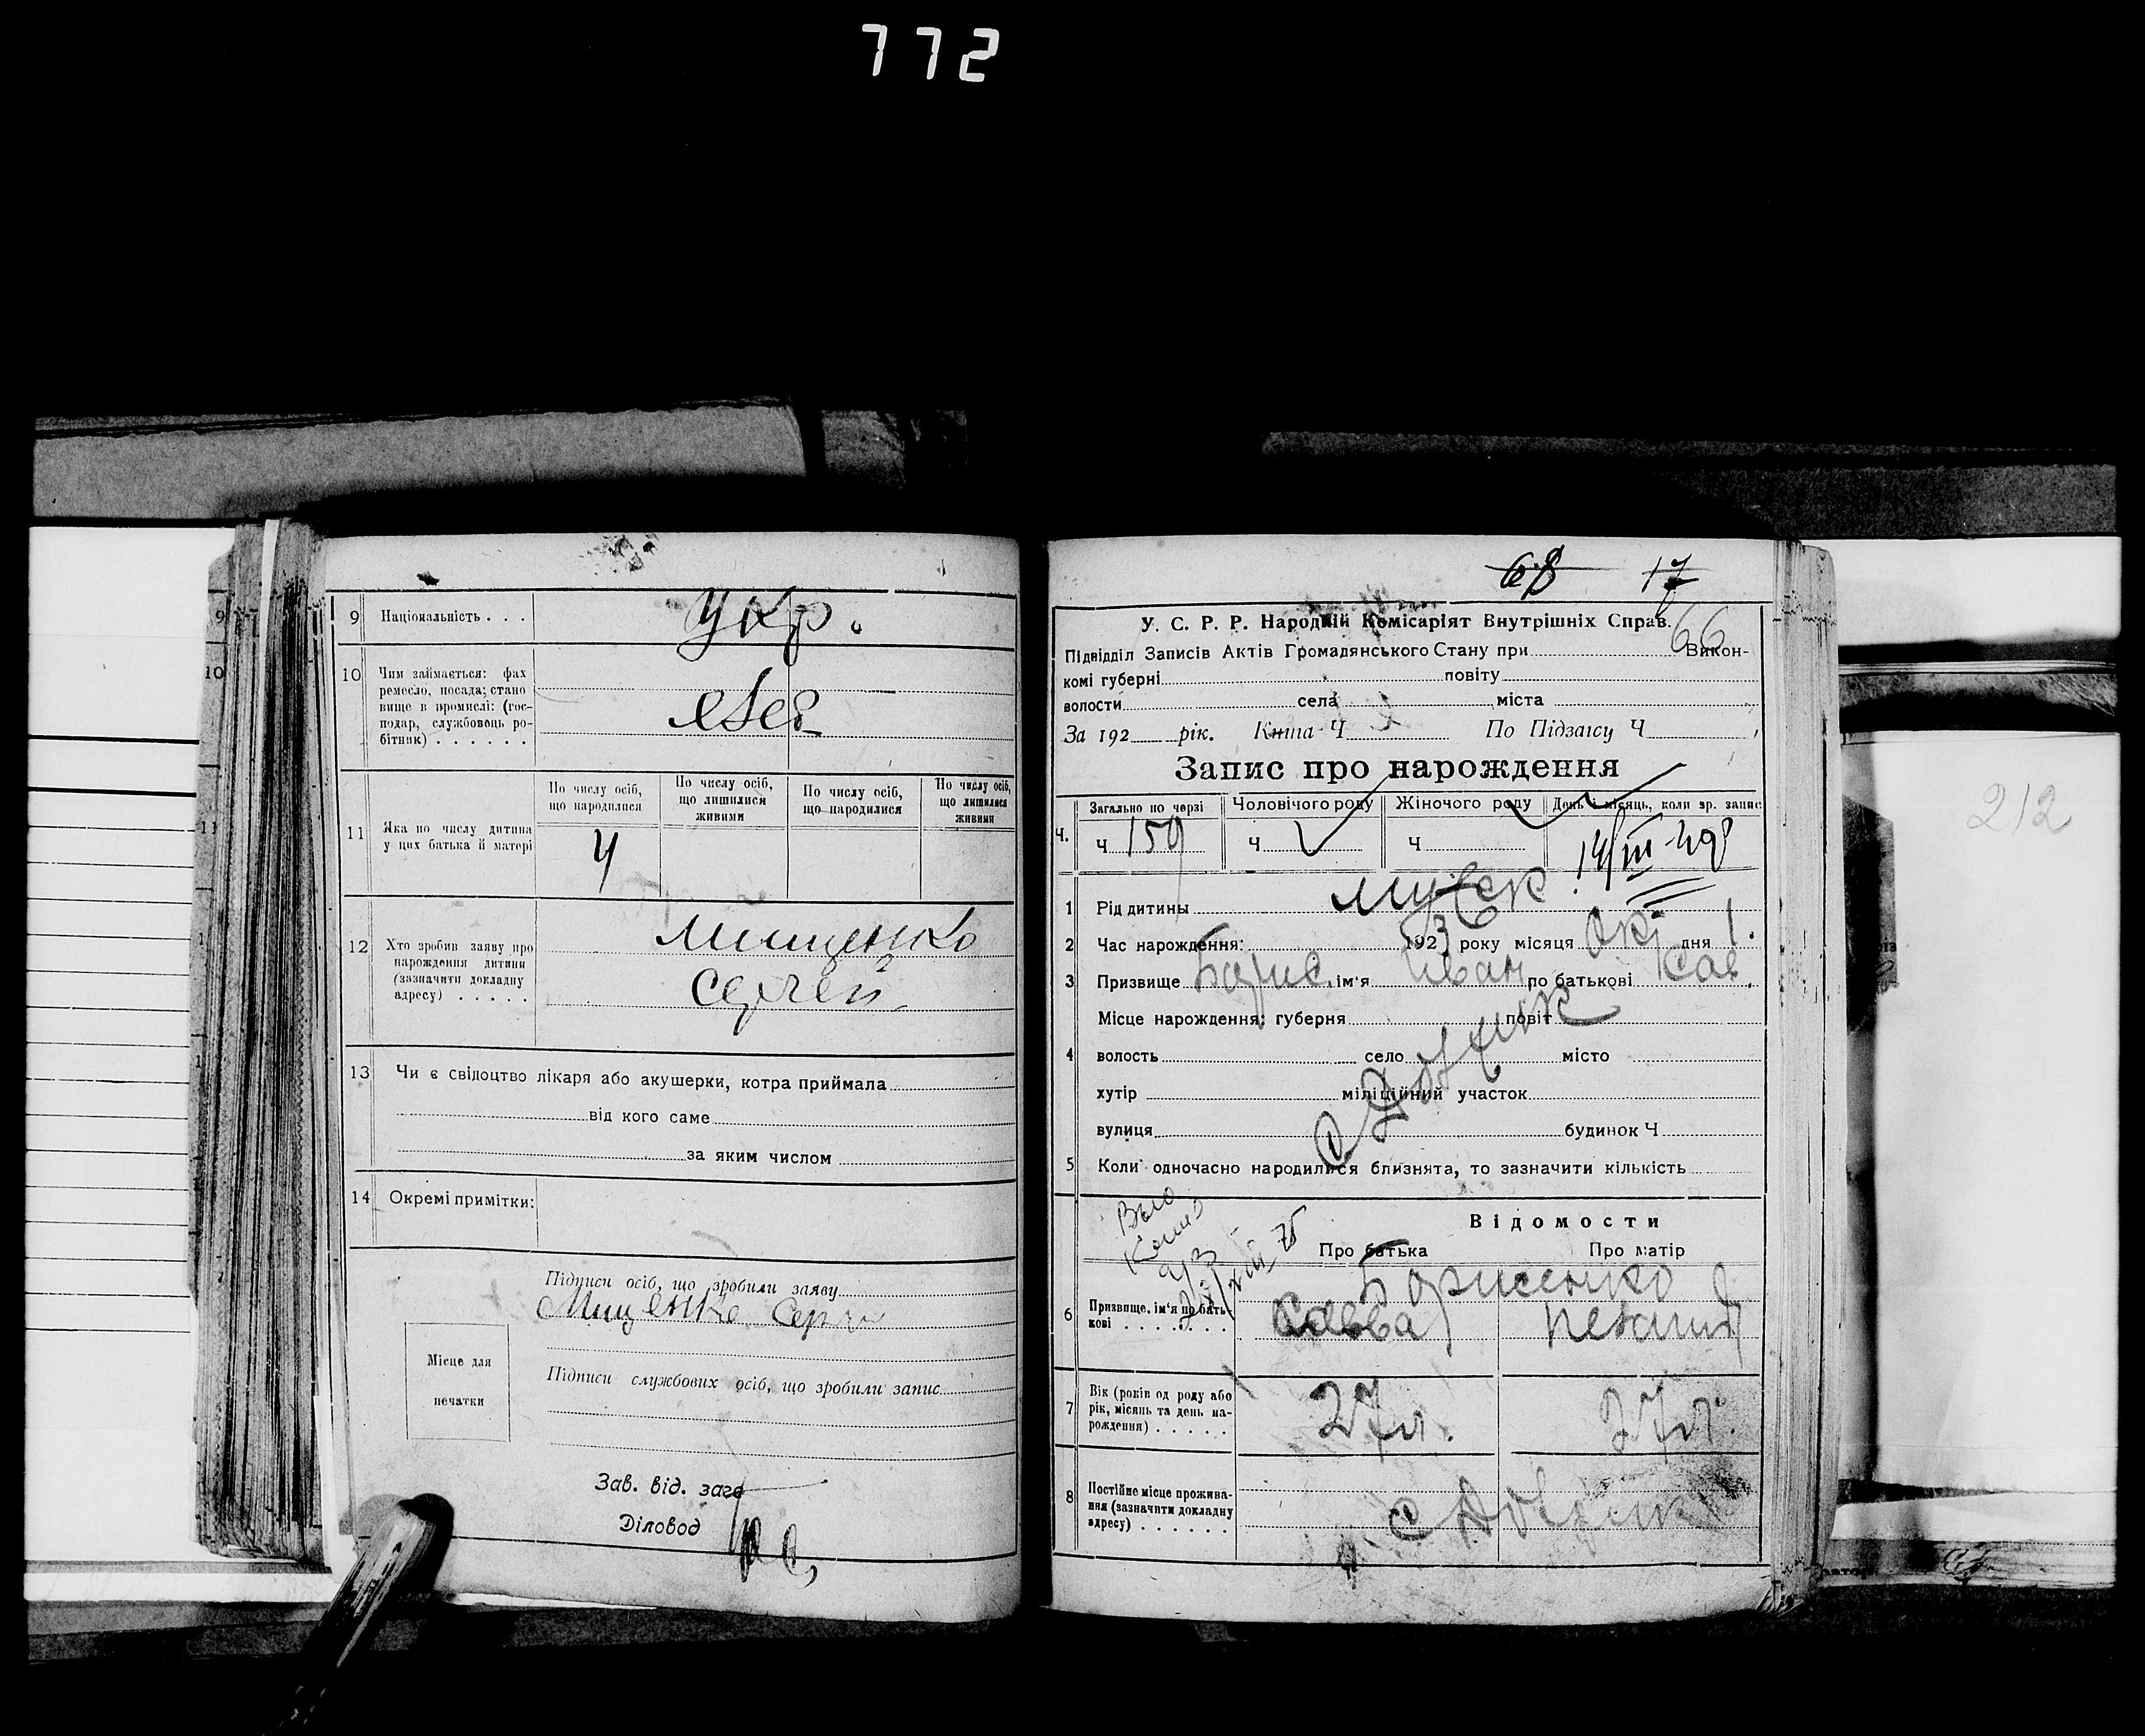 772
9 Національність . . . Укр.
10 Чим займається: фах
ремесло, посада; стано
вище в промислі: (гос-
подар, службовець ро-
бітник) . . . . . .
11 Яка по числу дитина
у цих батька й матері
По числу осіб,
що народилися
По числу осіб,
що лишилися
живими
По числу осіб,
що народилися
По числу осіб,
що лишилися
живими
4
12 Хто зробив заяву про
нарождення дитини
(зазначити докладну
адресу) . . . . .
Мищенко
Сергей
13 Чи є свідоцтво лікаря або акушерки, котра приймала
від кого саме
за яким числом
14 Окремі примітки:
Підписи осіб, що зробили заяву
Мищенко Сергей
Місце для
печатки
Підписи службових осіб, що зробили запис
Зав. від. загс
Діловод
68 17
66
У. С. Р. Р. Народній Комісаріят Внутрішніх Справ.
Підвідділ Записів Актів Громадянського Стану при Викон-
комі губерні повіту
волости села міста
За 192 рік. Книга Ч По Підзагсу Ч
Запис про нарождення
Ч.
Загально по черзі
Ч 159
Чоловічого роду
Ч
Жіночого роду
Ч
День і місяць, коли зр. запис
1 Рід дитины
2 Час нарождення: 1923 року місяця Окт дня 1.
3 Призвище Борис. ім'я Иван по батькові Сав.
Місце нарождення: губерня повіт
4 волость село місто
хутір міліційний участок
вулиця будинок Ч
5 Коли одночасно народилися близнята, то зазначити кількість
Відомости
Про батька Про матір
6 Призвище, ім'я по бать-
кові . . . . . . .
Борисенко
Савва
7 Вік (років од роду або
рік, місяць та день на-
рождення) . . . . .
27 л. 27 л.
8 Постійне місце прожива-
ння (зазначити докладну
адресу) . . . . . .
212